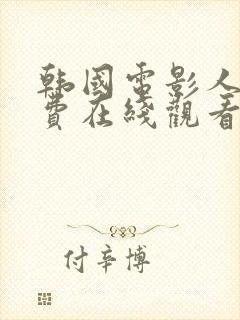 韩國電影人
費在綫觀看
付辛博